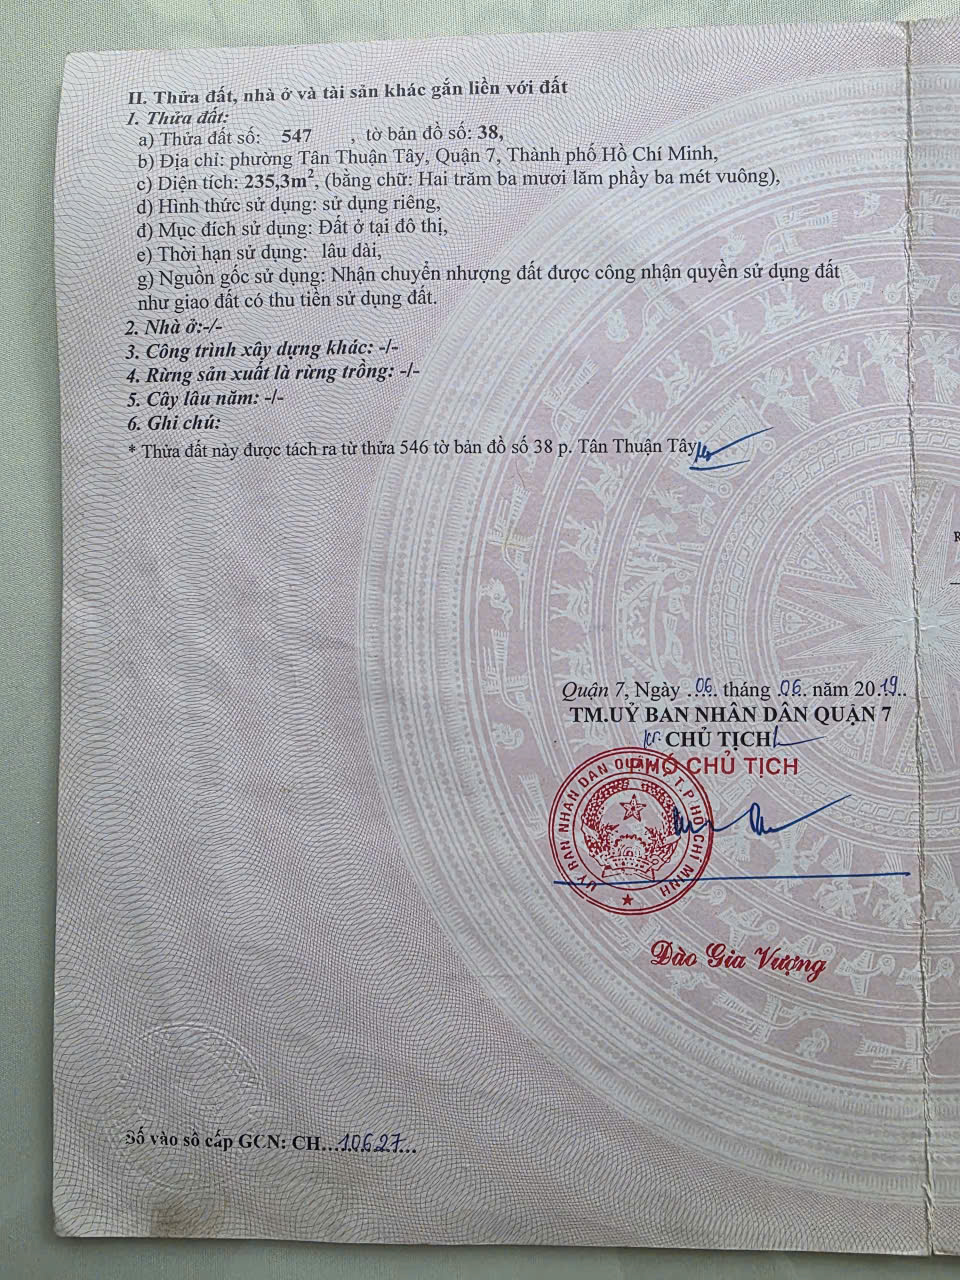 II. Thửa đất, nhà ở và tài sản khác gắn liền với đất
1. Thửa đất:
a) Thửa đất số: 547 , tờ bản đồ số: 38,
b) Địa chỉ: phường Tân Thuận Tây, Quận 7, Thành phố Hồ Chí Minh,
c) Diện tích: 235,3m², (bằng chữ: Hai trăm ba mươi lăm phẩy ba mét vuông),
d) Hình thức sử dụng: sử dụng riêng,
đ) Mục đích sử dụng: Đất ở tại đô thị,
e) Thời hạn sử dụng: lâu dài,
g) Nguồn gốc sử dụng: Nhận chuyển nhượng đất được công nhận quyền sử dụng đất
như giao đất có thu tiền sử dụng đất.
2. Nhà ở:-/-
3. Công trình xây dựng khác: -/-
4. Rừng sản xuất là rừng trồng: -/-
5. Cây lâu năm: -/-
6. Ghi chú:
* Thửa đất này được tách ra từ thửa 546 tờ bản đồ số 38 p. Tân Thuận Tây
Quận 7, Ngày .06. tháng .06. năm 20.19..
TM.UỶ BAN NHÂN DÂN QUẬN 7
KT. CHỦ TỊCH
PHÓ CHỦ TỊCH
ỦY BAN NHÂN DÂN QUẬN 7 T.P HỒ CHÍ MINH
Đào Gia Vượng
Số vào sổ cấp GCN: CH...10627...